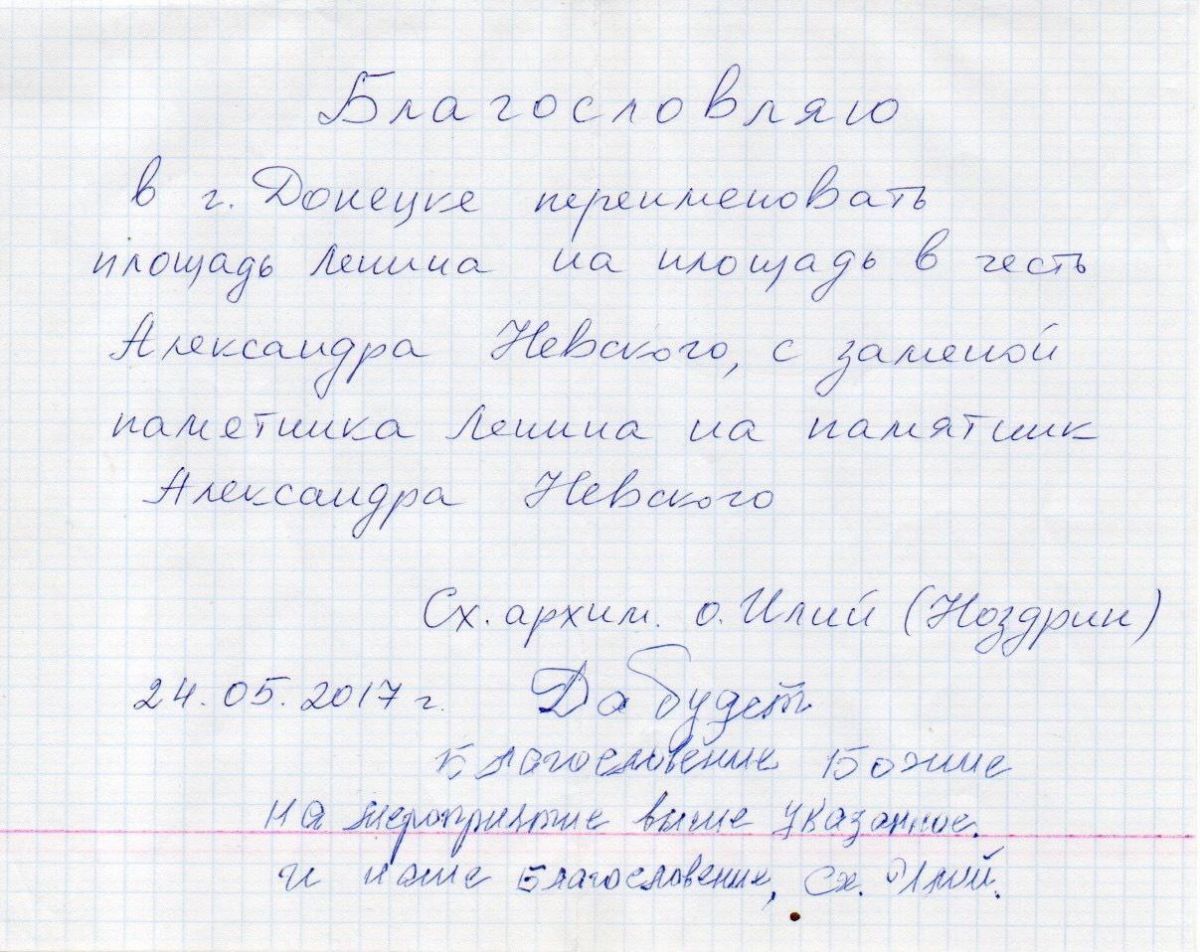 Благословляю
в г. Донецке переименовать
площадь Ленина на площадь в честь
Александра Невского, с заменой
паметника Ленина на памятник
Александра Невского
Сх. архим. о. Илий (Ноздрин)
24.05.2017 г. Да будет
Благословение Божие
на мероприятие выше указанное.
и наше Благословение, Сх. Илий.